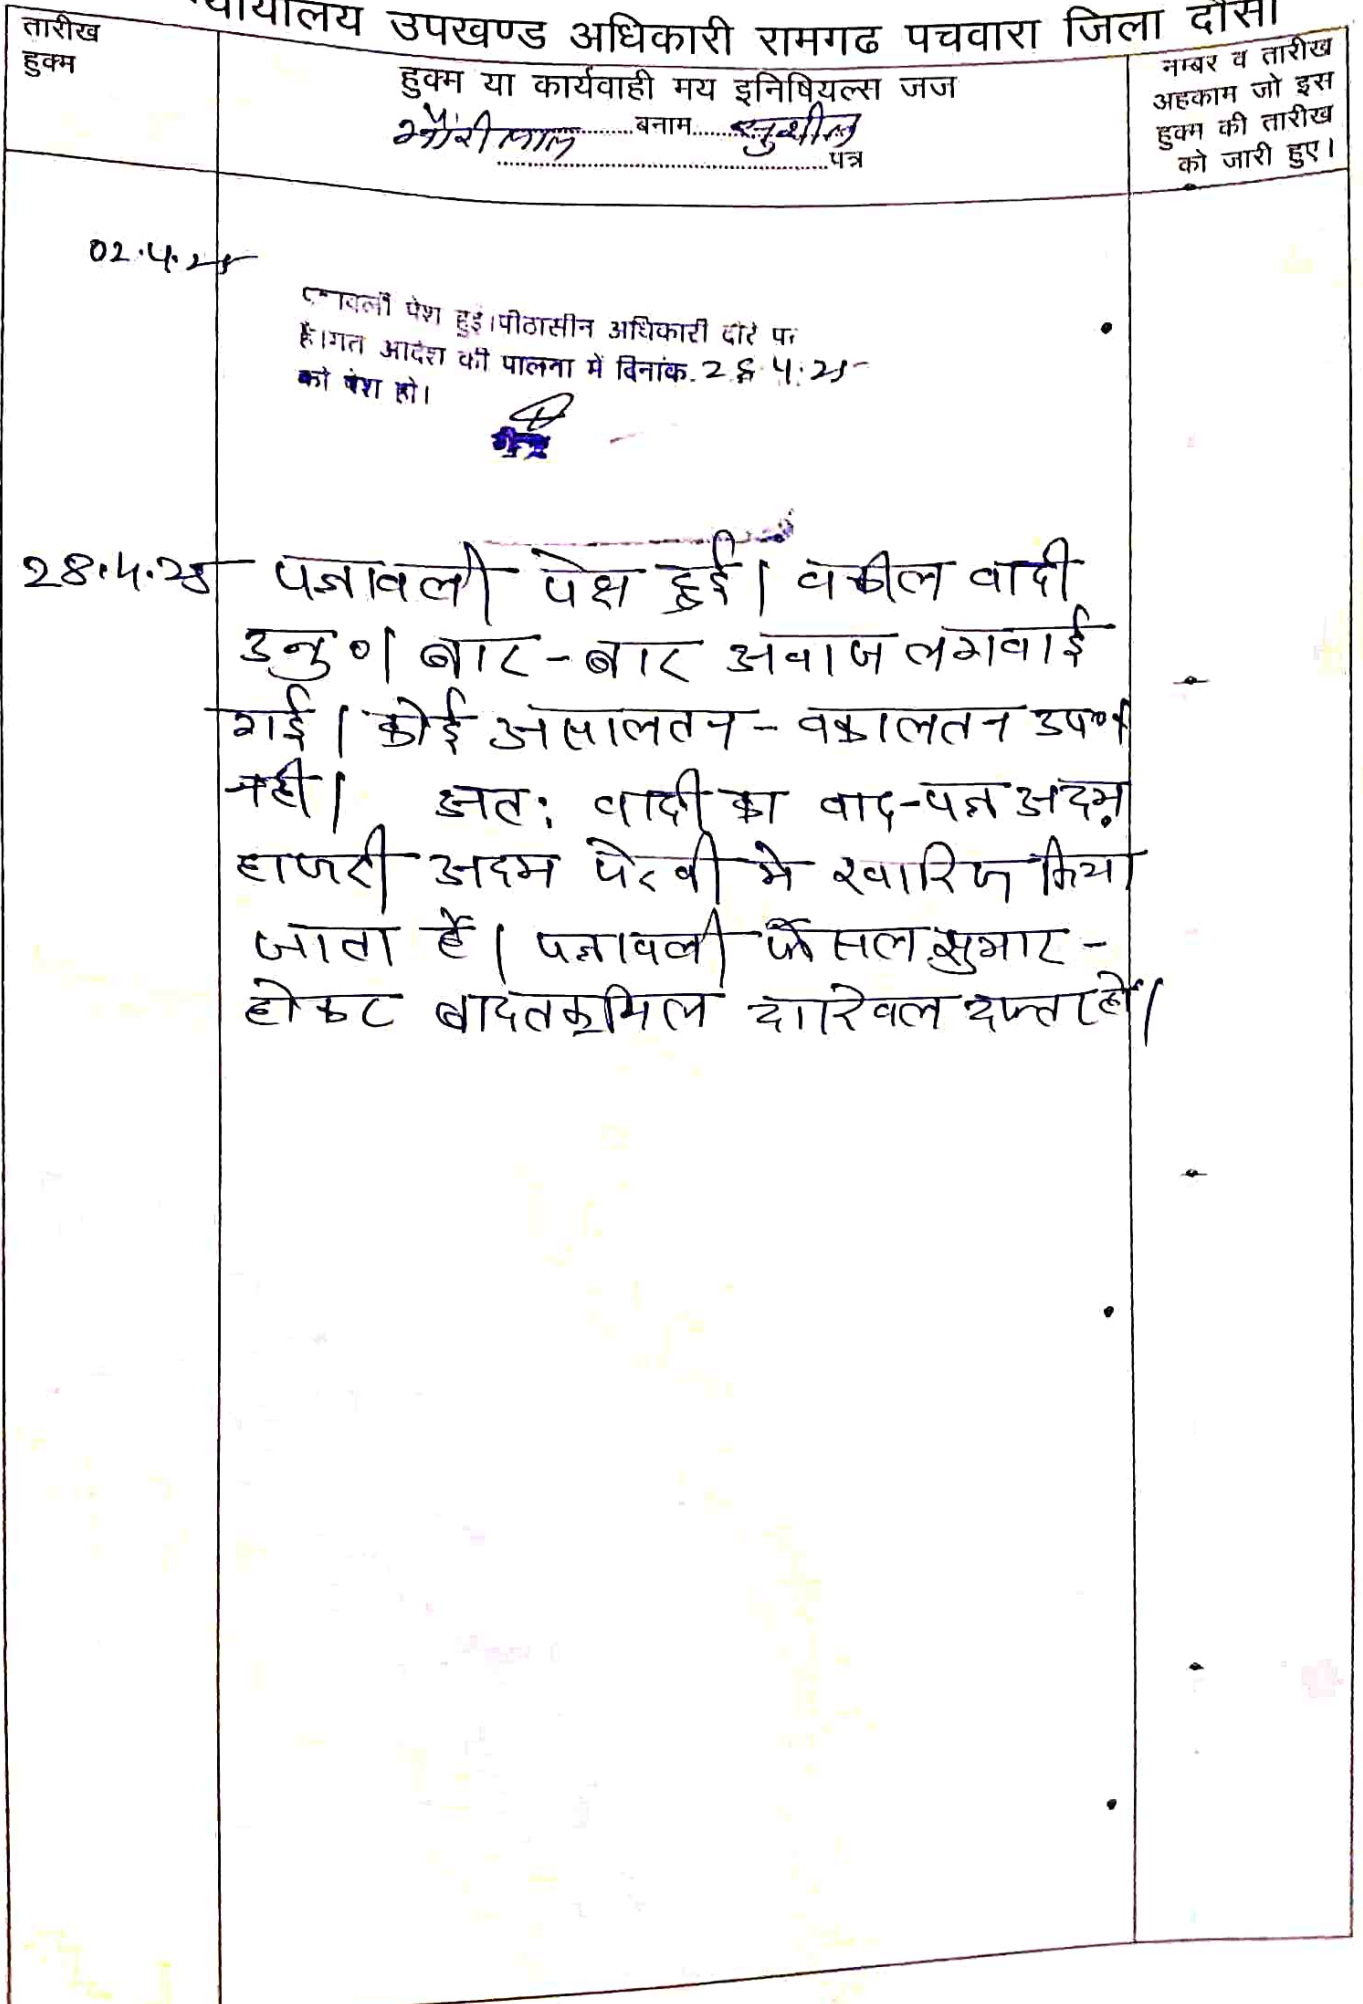 न्यायालय उपखण्ड अधिकारी रामगढ पचवारा जिला दौसा
तारीख
हुक्म
हुक्म या कार्यवाही मय इनिषियल्स जज
भौंरीलाल.........बनाम.......सुशील
...................................................पत्र
नम्बर व तारीख
अहकाम जो इस
हुक्म की तारीख
को जारी हुए।
02.4.25
पत्रावली पेश हुई।पीठासीन अधिकारी दौरे पर
हैं।गत आदेश की पालना में दिनांक. 28.4.25
को पेश हो।
28.4.25 पत्रावली पेश हुई। वकील वादी
अनु०। बार-बार अवाज लगवाई
गई। कोई असालतन-वकालतन उप०
नही। अत: वादी का वाद-पत्र अदम
हाजरी अदम पेरवी मे खारिज किया
जाता है। पत्रावली फैसल सुमार-
होकर बादतकमिल दाखिल दफ्तर हों।